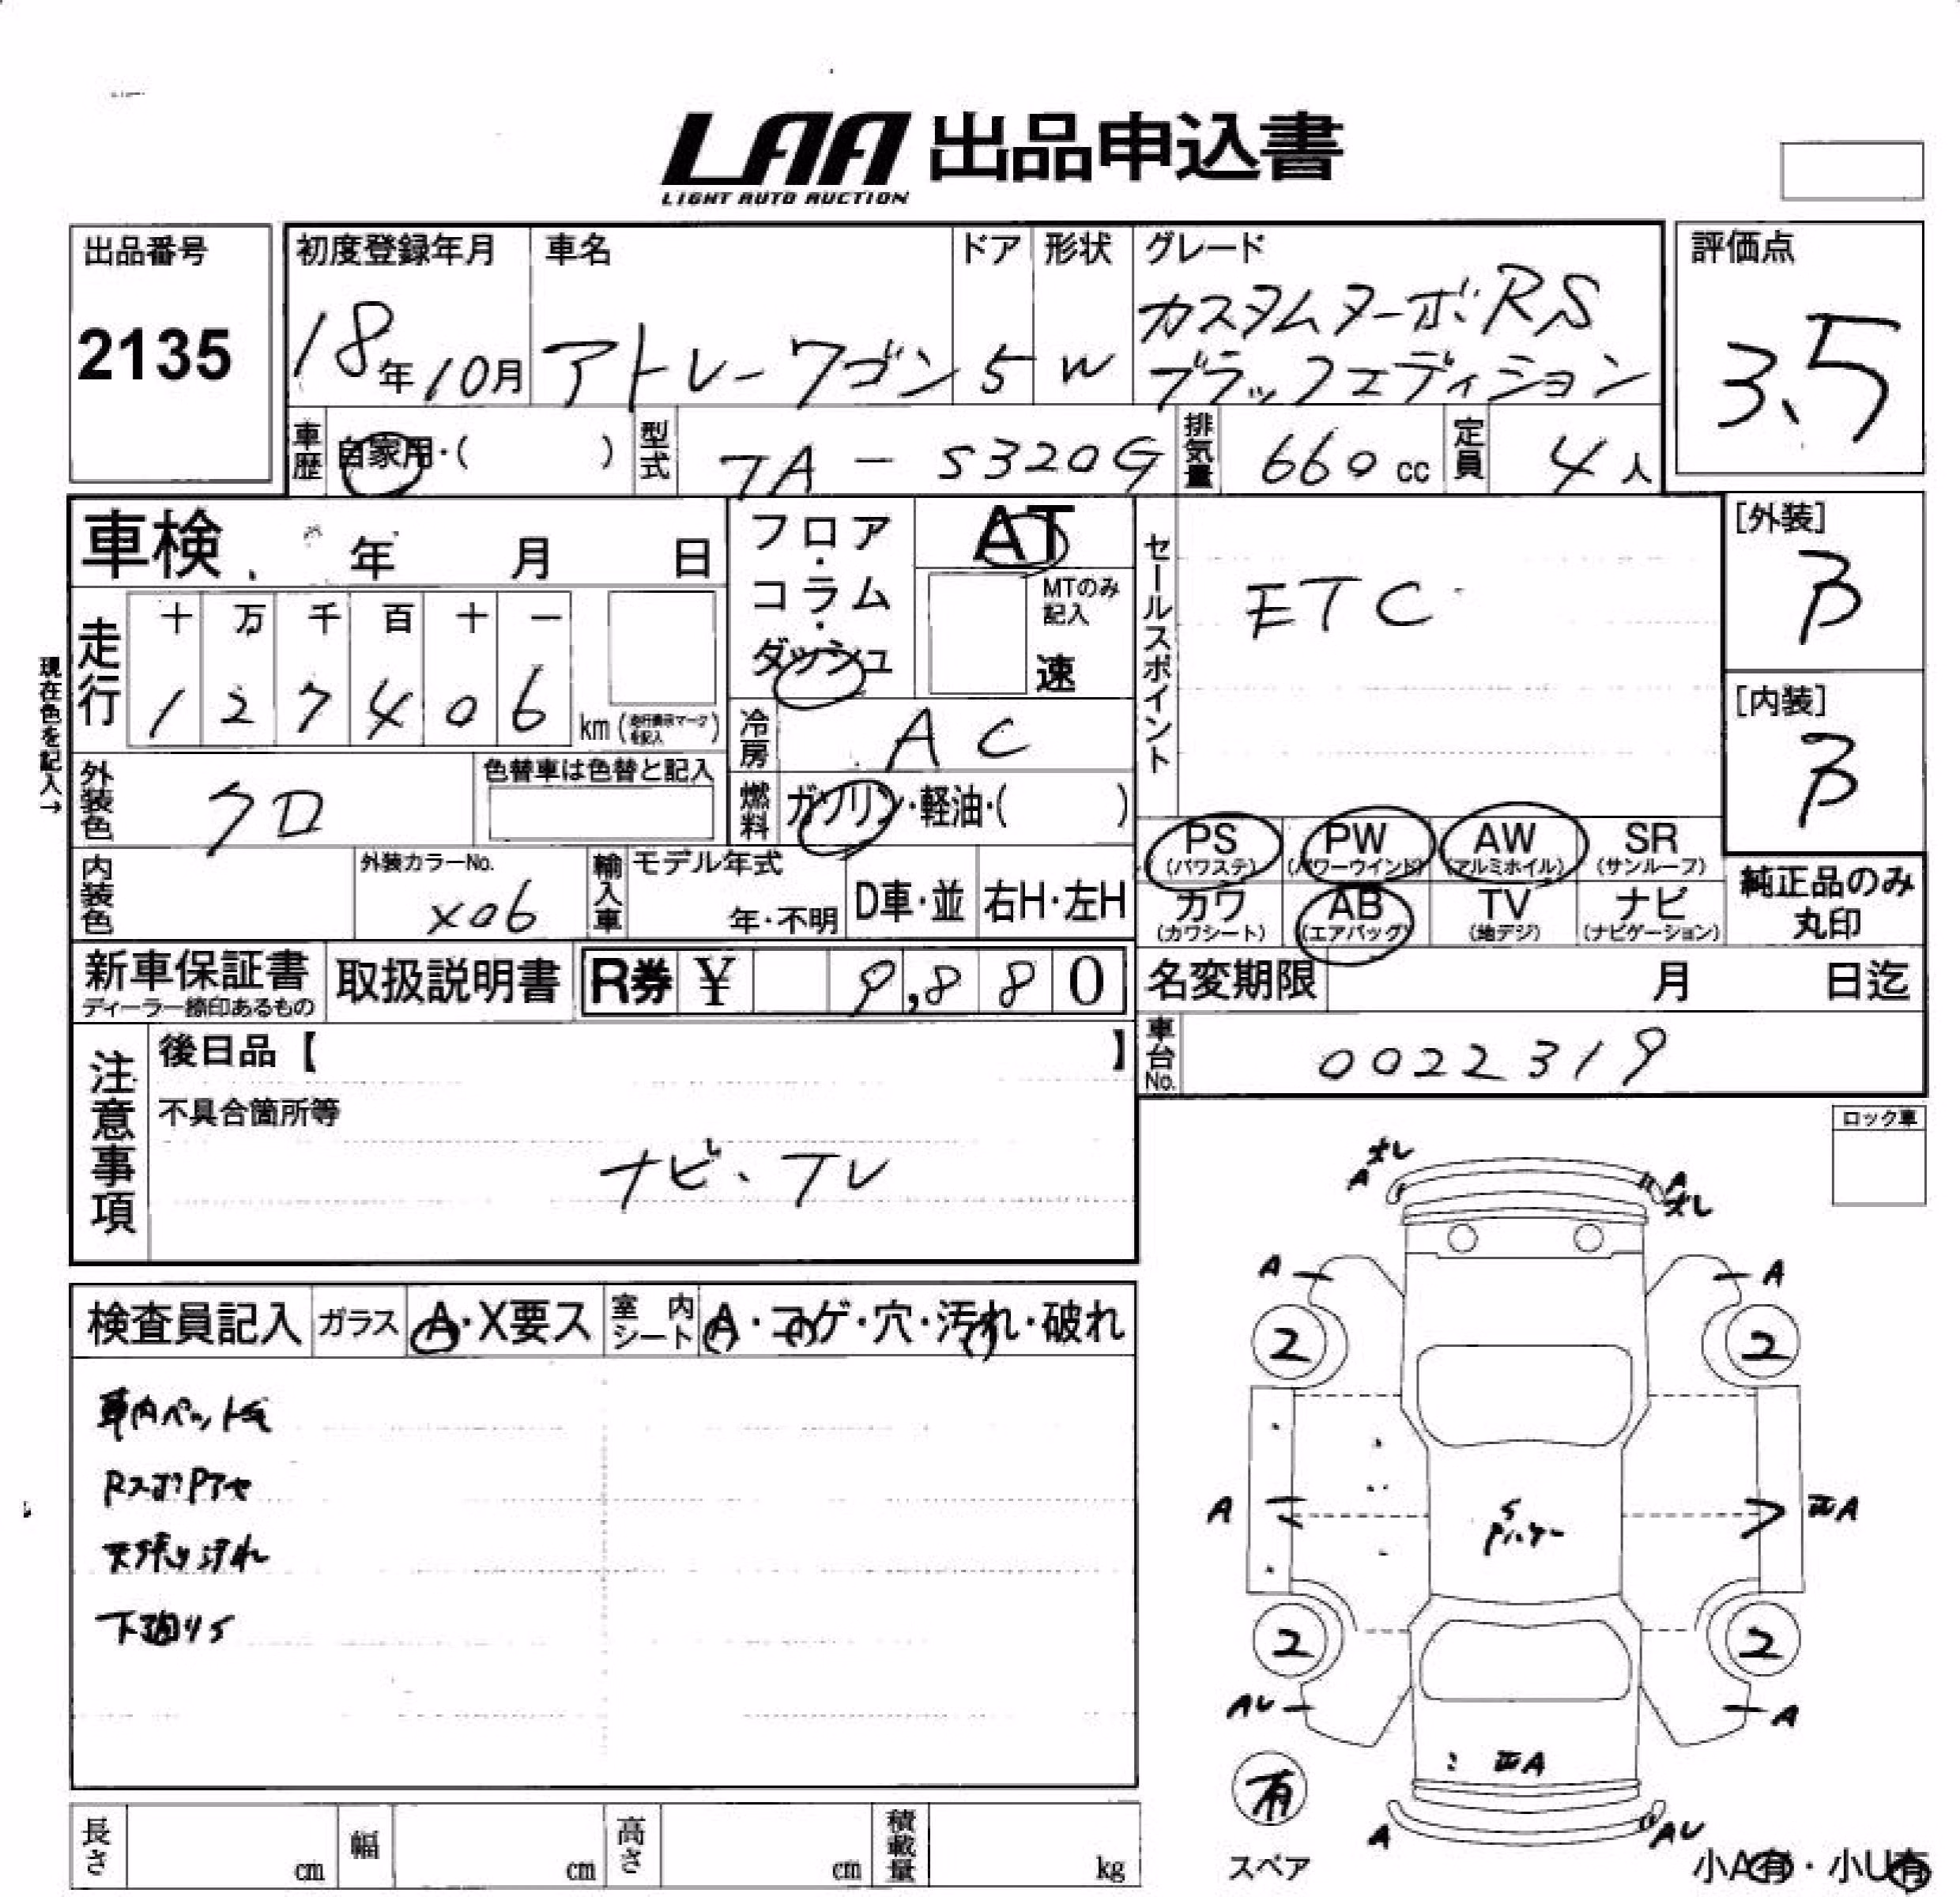 LAA 出品申込書
LIGHT AUTO AUCTION
出品番号
2135
初度登録年月
18年10月
車名
アトレーワゴン
ドア
5
形状
W
グレード
カスタムターボRS
ブラックエディション
評価点
3.5
車歴 自家用・( )
型式 TA-S320G
排気量 660cc
定員 4人
車検 年 月 日
フロア・コラム・ダッシュ
AT
MTのみ記入
速
セールスポイント
ETC
[外装]
B
[内装]
B
現在色を記入→
走行
十 万 千 百 十 一
1 2 7 4 0 6 km
冷房 AC
外装色 クロ
色替車は色替と記入
燃料 ガソリン・軽油・( )
PS (パワステ)
PW (パワーウインド)
AW (アルミホイル)
SR (サンルーフ)
カワ (カワシート)
AB (エアバッグ)
TV (地デジ)
ナビ (ナビゲーション)
純正品のみ
丸印
内装色
外装カラーNo.
X06
輸入車
モデル年式
年・不明
D車・並
右H・左H
新車保証書
ディーラー捺印あるもの
取扱説明書
R券 ¥ 9,880
名変期限 月 日迄
車台No. 0022319
注意事項
後日品【 】
不具合箇所等
ナビ、TV
ロック車
検査員記入
ガラス A・X要ス
室内シート A・コゲ・穴・汚れ・破れ
天張り汚れ
下廻りS
A
A
A
A
2
2
A
A
2
2
AU
A
A
A
AU
有
スペア
小A有・小U有
長さ cm
幅 cm
高さ cm
積載量 kg